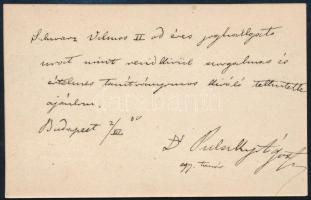 Schwarz Vilmos II od éves joghallgató
urat mint rendkívül szorgalmas és
értelmes tanítványomat kiváló tisztelettel
ajánlom.
Budapest 2/VI 80
Dr Pulszky Ágost
egy. tanár